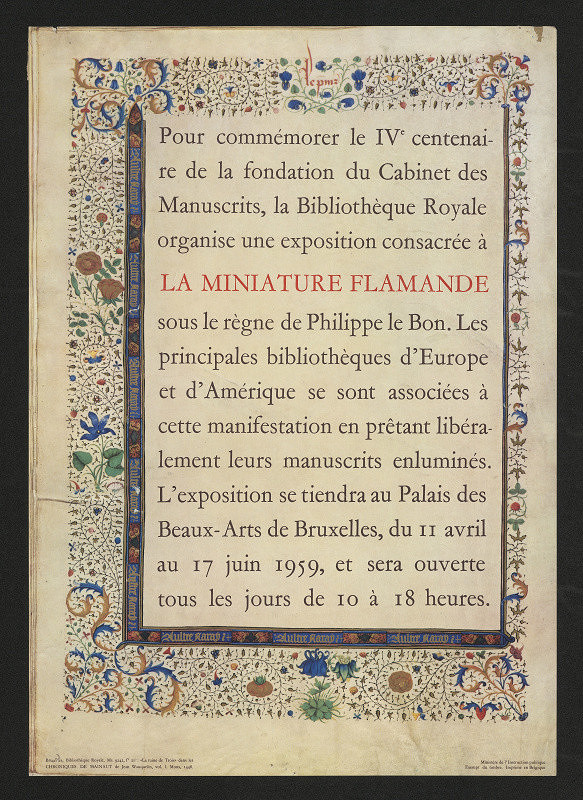 Pour commémorer le IVᵉ centenai-
re de la fondation du Cabinet des
Manuscrits, la Bibliothèque Royale
organise une exposition consacrée à
LA MINIATURE FLAMANDE
sous le règne de Philippe le Bon. Les
principales bibliothèques d'Europe
et d'Amérique se sont associées à
cette manifestation en prêtant libéra-
lement leurs manuscrits enluminés.
L'exposition se tiendra au Palais des
Beaux-Arts de Bruxelles, du 11 avril
au 17 juin 1959, et sera ouverte
tous les jours de 10 à 18 heures.
Bibliothèque Royale, Ms
CHRONIQUES DE HAINAUT de Jean Wauquelin, vol. I. Mons, 1448.
Ministère de l'Instruction publique
Exempt de timbre. Imprimé en Belgique